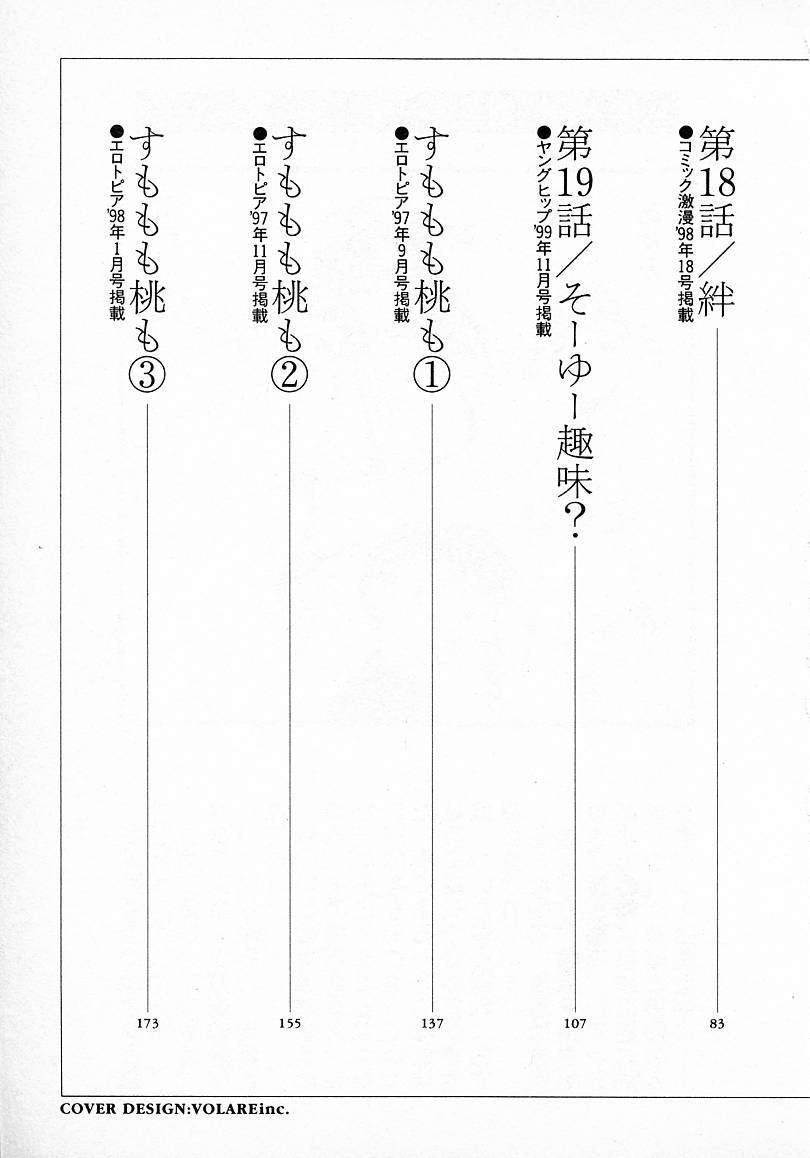 第18話／絆
●コミック激漫'98年18号掲載
83
第19話／そーゆー趣味？
●ヤングヒップ'99年11月号掲載
107
すももも桃も①
●エロトピア'97年9月号掲載
137
すももも桃も②
●エロトピア'97年11月号掲載
155
すももも桃も③
●エロトピア'98年1月号掲載
173
COVER DESIGN:VOLAREinc.